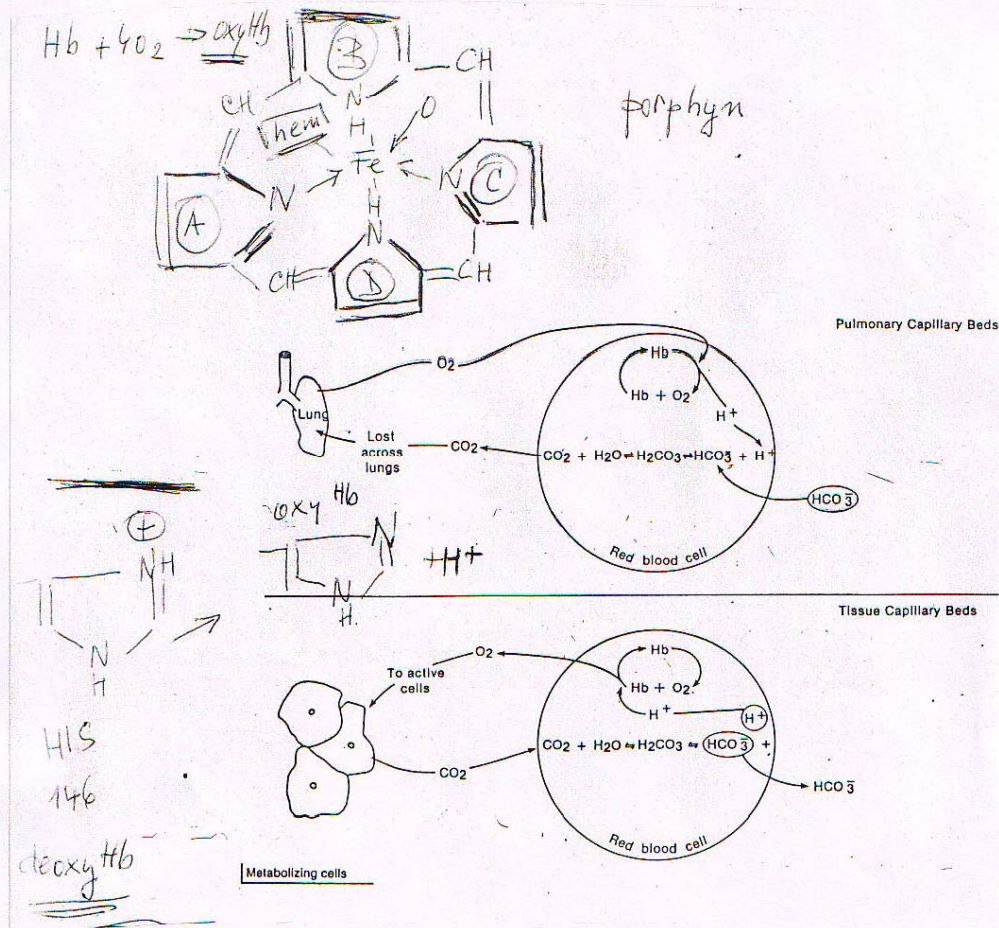 Hb + 4O2 → oxyHb
B
CH
CH
N
O
porphyn
hem
H
Fe
N
C
A
N
H
N
CH
D
CH
Pulmonary Capillary Beds
O2
Hb
Hb + O2
Lung
H+
Lost
across
lungs
CO2
CO2 + H2O ⇌ H2CO3 ⇌ HCO3- + H+
HCO3-
Red blood cell
oxy Hb
N
N
H.
+H+
+
NH
N
H
HIS
146
deoxyHb
Tissue Capillary Beds
O2
Hb
To active
cells
Hb + O2
H+
H+
CO2 + H2O ⇌ H2CO3 ⇌ HCO3- +
CO2
HCO3-
Red blood cell
Metabolizing cells